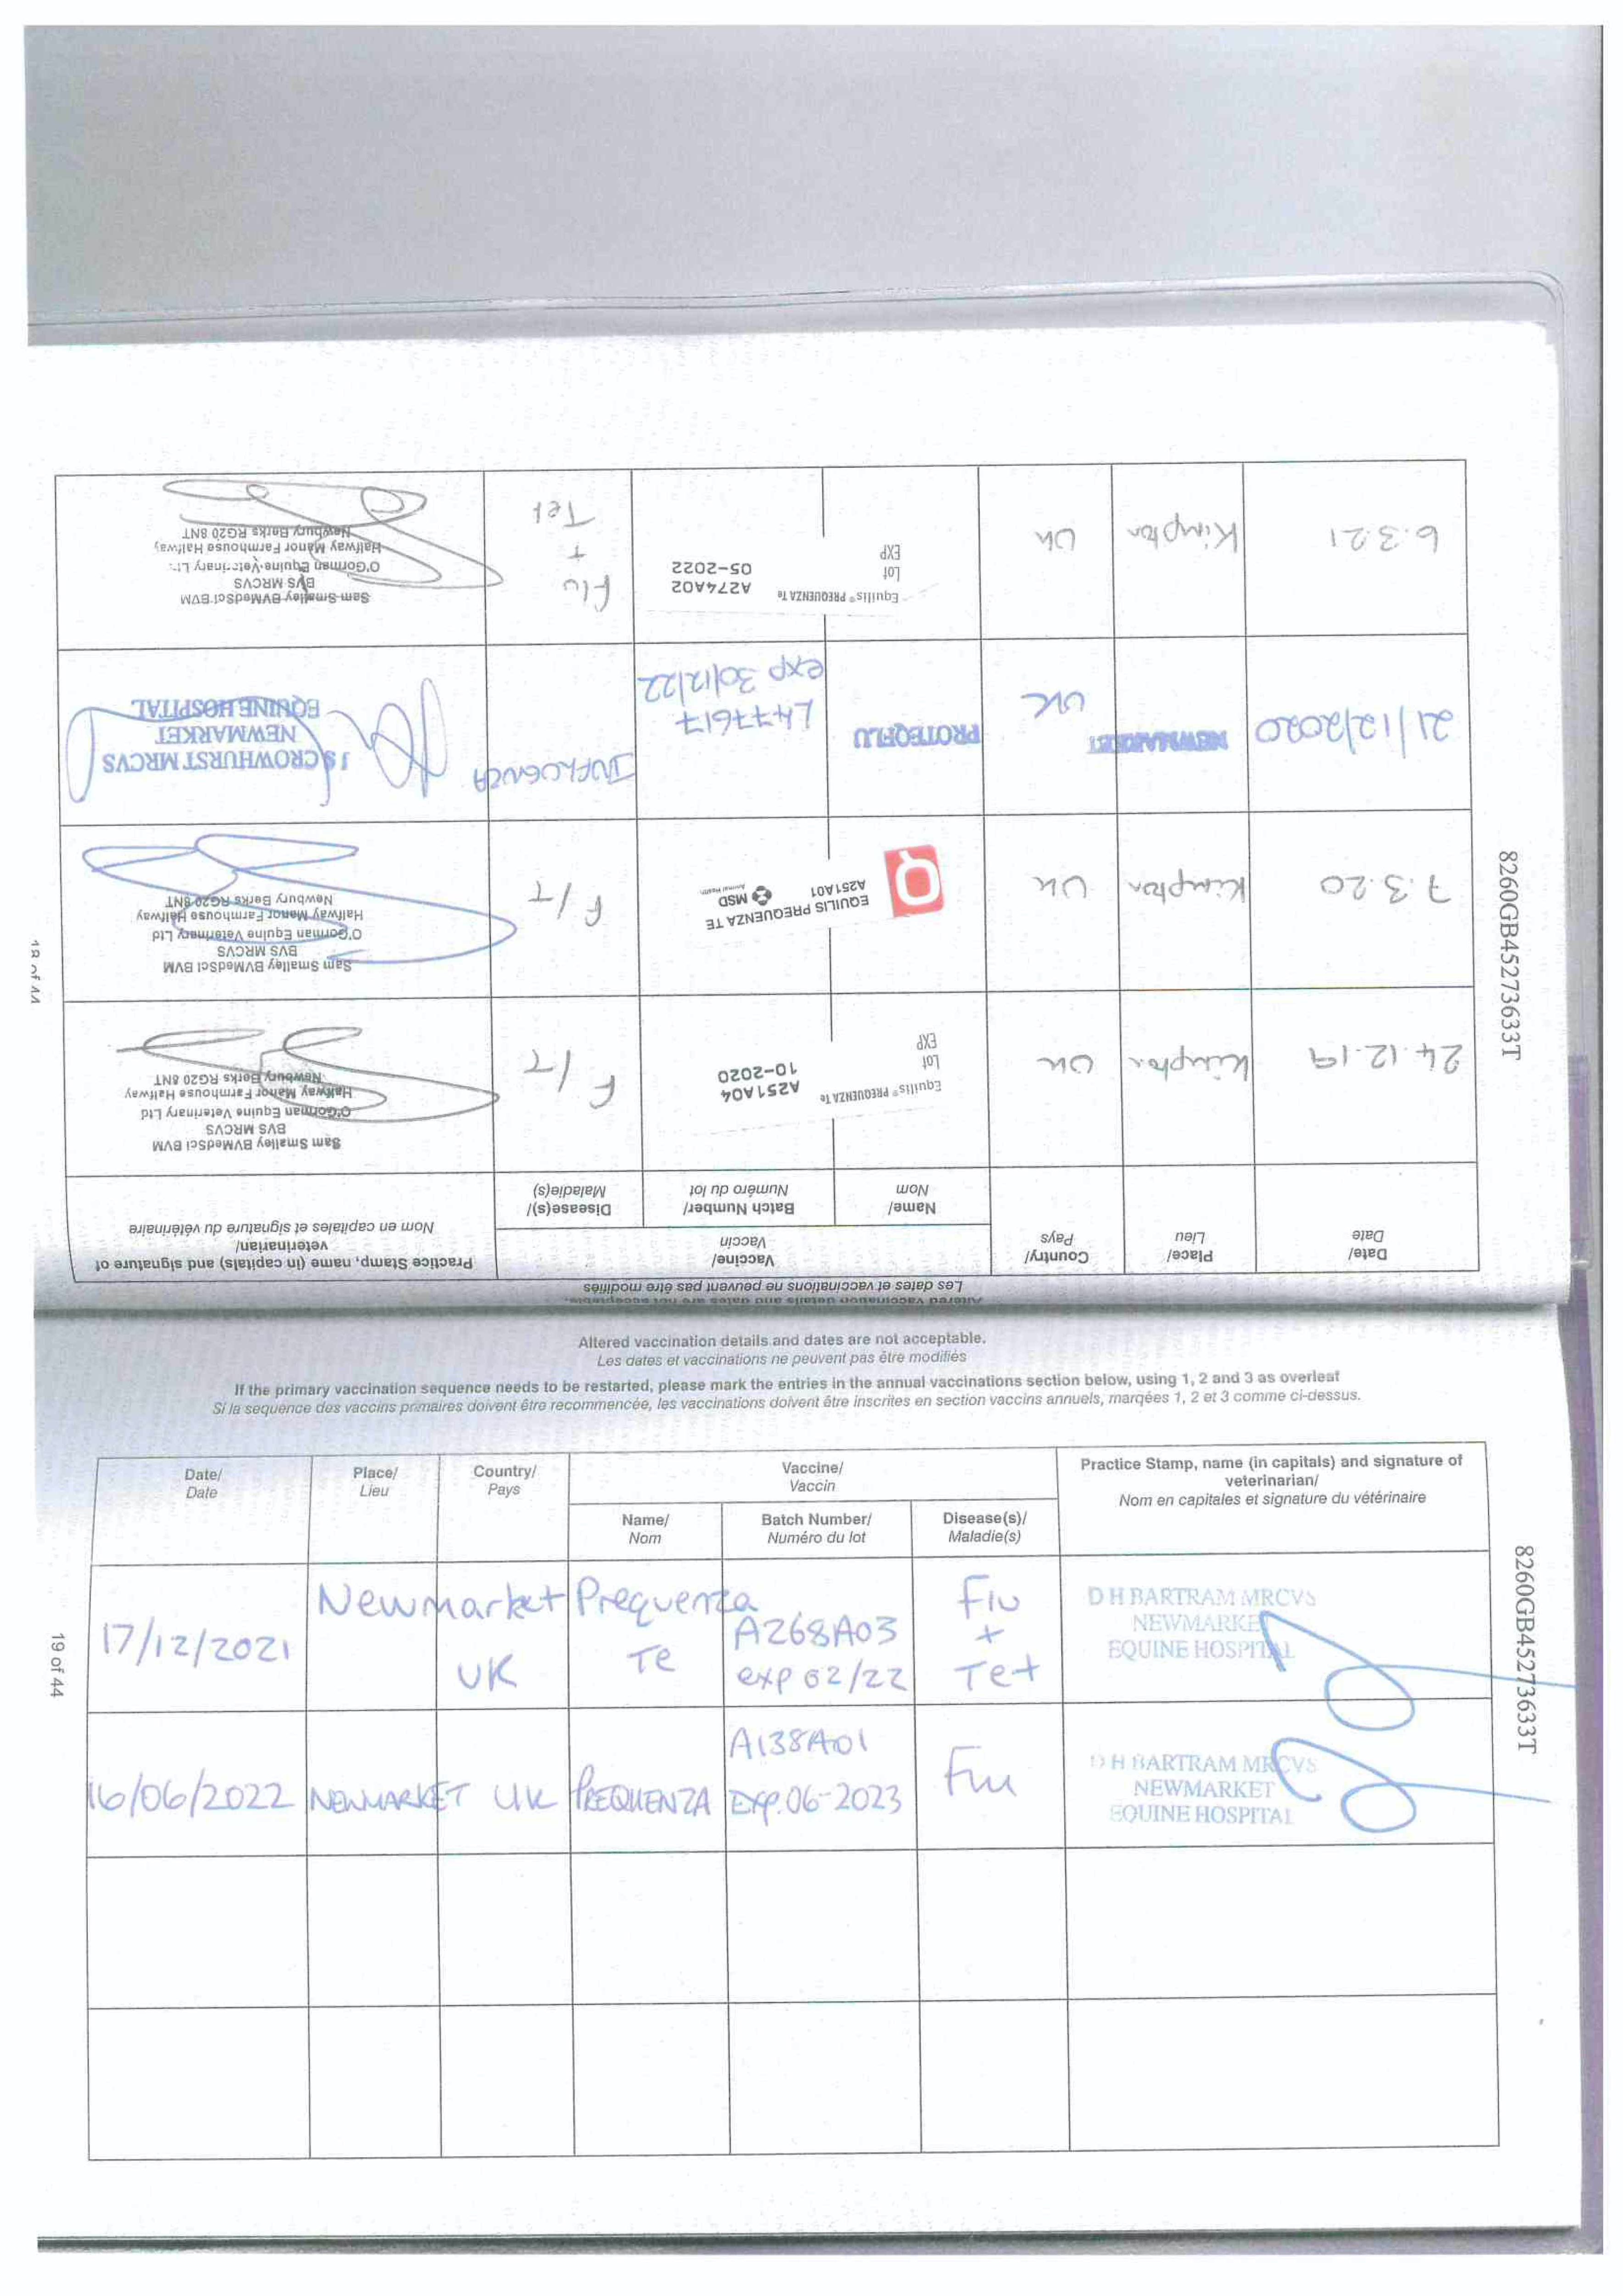 Altered vaccination details and dates are not acceptable.
Les dates et vaccinations ne peuvent pas être modifiés
Date/
Date
Place/
Lieu
Country/
Pays
Vaccine/
Vaccin
Name/
Nom
Batch Number/
Numéro du lot
Disease(s)/
Maladie(s)
Practice Stamp, name (in capitals) and signature of
veterinarian/
Nom en capitales et signature du vétérinaire
24.12.19
Kimpton
UK
Equilis® PREQUENZA Te
Lot
EXP
A251A04
10-2020
F/T
Sam Smalley BVMedSci BVM
BVS MRCVS
O'Gorman Equine Veterinary Ltd
Halfway Manor Farmhouse Halfway
Newbury Berks RG20 8NT
7.3.20
Kimpton
UK
EQUILIS PREQUENZA TE
A251A01
MSD
Animal Health
F/T
Sam Smalley BVMedSci BVM
BVS MRCVS
O'Gorman Equine Veterinary Ltd
Halfway Manor Farmhouse Halfway
Newbury Berks RG20 8NT
21/12/2020
NEWMARKET
UK
PROTEQFLU
L477617
exp 30/12/22
INFLUENZA
J S CROWHURST MRCVS
NEWMARKET
EQUINE HOSPITAL
6.3.21
Kimpton
UK
Equilis® PREQUENZA Te
Lot
EXP
A274A02
05-2022
Flu
+
Tet
Sam Smalley BVMedSci BVM
BVS MRCVS
O'Gorman Equine Veterinary Ltd
Halfway Manor Farmhouse Halfway
Newbury Berks RG20 8NT
18 of 44
8260GB45273633T
Altered vaccination details and dates are not acceptable.
Les dates et vaccinations ne peuvent pas être modifiés
If the primary vaccination sequence needs to be restarted, please mark the entries in the annual vaccinations section below, using 1, 2 and 3 as overleaf
Si la sequence des vaccins primaires doivent être recommencée, les vaccinations doivent être inscrites en section vaccins annuels, marqées 1, 2 et 3 comme ci-dessus.
Date/
Date
Place/
Lieu
Country/
Pays
Vaccine/
Vaccin
Name/
Nom
Batch Number/
Numéro du lot
Disease(s)/
Maladie(s)
Practice Stamp, name (in capitals) and signature of
veterinarian/
Nom en capitales et signature du vétérinaire
17/12/2021
Newmarket
UK
Prequenza
Te
A268A03
exp 02/22
Flu
+
Tet
D H BARTRAM MRCVS
NEWMARKET
EQUINE HOSPITAL
16/06/2022
NEWMARKET
UK
PREQUENZA
A138A01
Exp. 06-2023
Flu
D H BARTRAM MRCVS
NEWMARKET
EQUINE HOSPITAL
19 of 44
8260GB45273633T